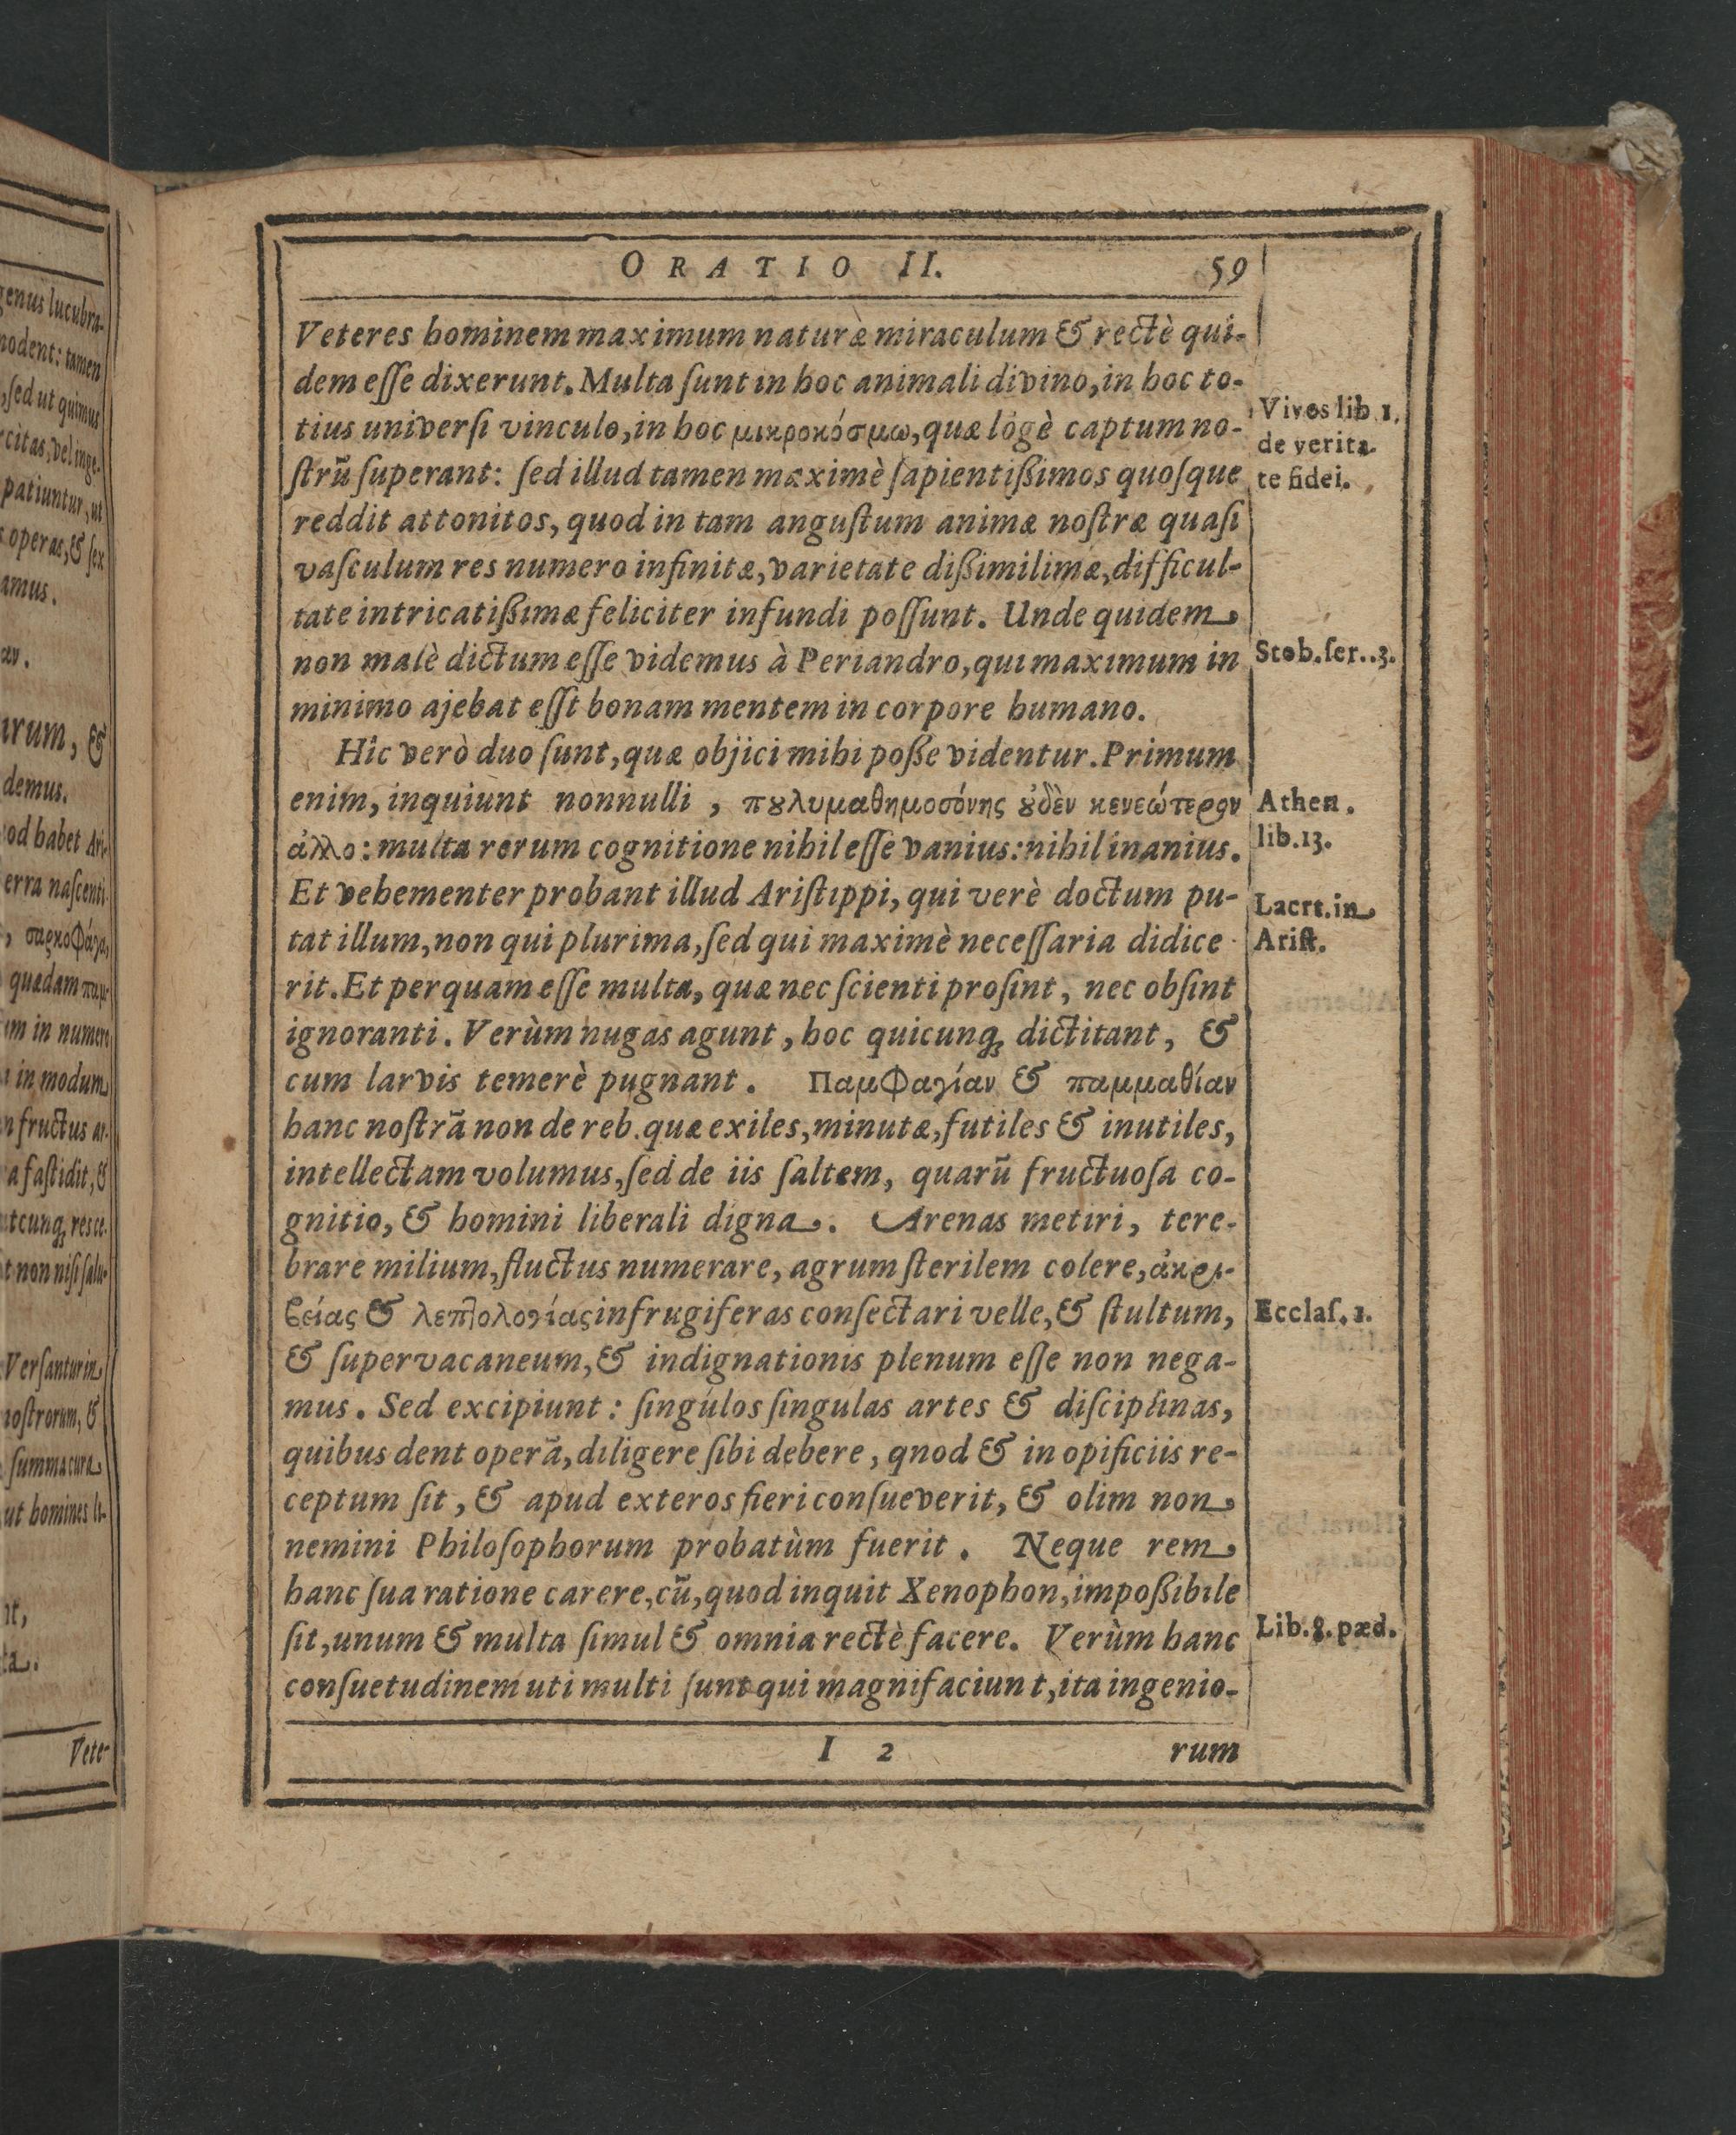 genus lucubra-
modent: tamen
, sed ut quimus
rcitas, vel inge-
patiuntur, ut
s operas, & ſex
amus.
arum, &
demus.
od habet Ari-
erra naſcenti-
, σαρκοφάγα,
quædam παμ-
um in numero
in modum
n fructus ar-
a faſtidit, &
utcunq; res ce-
t non niſi ſalu-
Verſantur in
noſtrorum, &
ſumma cura
ut homines li-
nt,
Vete-
ORATIO II. 59
Veteres hominem maximum naturæ miraculum & rectè qui-
dem eſſe dixerunt. Multa ſunt in hoc animali divino, in hoc to-
tius univerſi vinculo, in hoc μικροκόσμω, quæ lõgè captum no-
ſtrũ ſuperant: ſed illud tamen maximè ſapientißimos quoſque
reddit attonitos, quod in tam anguſtum animæ noſtræ quaſi
vaſculum res numero infinitæ, varietate dißimilimæ, difficul-
tate intricatißimæ feliciter infundi poſſunt. Unde quidem
non malè dictum eſſe videmus à Periandro, qui maximum in
minimo ajebat eſſt bonam mentem in corpore humano.
Hîc verò duo ſunt, quæ objici mihi poße videntur. Primum
enim, inquiunt nonnulli, πȣλυμαθημοσόνης ȣ̓δὲν κενεώτερον
ἀλλο: multa rerum cognitione nihil eſſe vanius: nihil inanius.
Et vehementer probant illud Ariſtippi, qui verè doctum pu-
tat illum, non qui plurima, ſed qui maximè neceſſaria didice-
rit. Et perquam eſſe multa, quæ nec ſcienti proſint, nec obſint
ignoranti. Verùm nugas agunt, hoc quicunq; dictitant, &
cum larvis temerè pugnant. Παμφαγίαν & παμμαθίαν
hanc noſtrã non de reb. quæ exiles, minutæ, futiles & inutiles,
intellectam volumus, ſed de iis ſaltem, quarũ fructuoſa co-
gnitio, & homini liberali digna. Arenas metiri, tere-
brare milium, fluctus numerare, agrum ſterilem colere, ἀκρι-
βείας & λεπτολογίας infrugiferas conſectari velle, & ſtultum,
& ſupervacaneum, & indignationis plenum eſſe non nega-
mus. Sed excipiunt: ſingulos ſingulas artes & diſciplinas,
quibus dent operã, diligere ſibi debere, qnod & in opificiis re-
ceptum ſit, & apud exteros fieri conſueverit, & olim non
nemini Philoſophorum probatùm fuerit. Neque rem
hanc ſua ratione carere, cũ, quod inquit Xenophon, impoßibile
ſit, unum & multa ſimul & omnia rectè facere. Verùm hanc
conſuetudinem uti multi ſunt qui magnifaciunt, ita ingenio-
I 2 rum
Vives lib 1.
de verita-
te fidei.
Stob. ſer..3.
Athen.
lib. 13.
Laert. in
Ariſt.
Ecclaſ. 1.
Lib. 8. pæd.